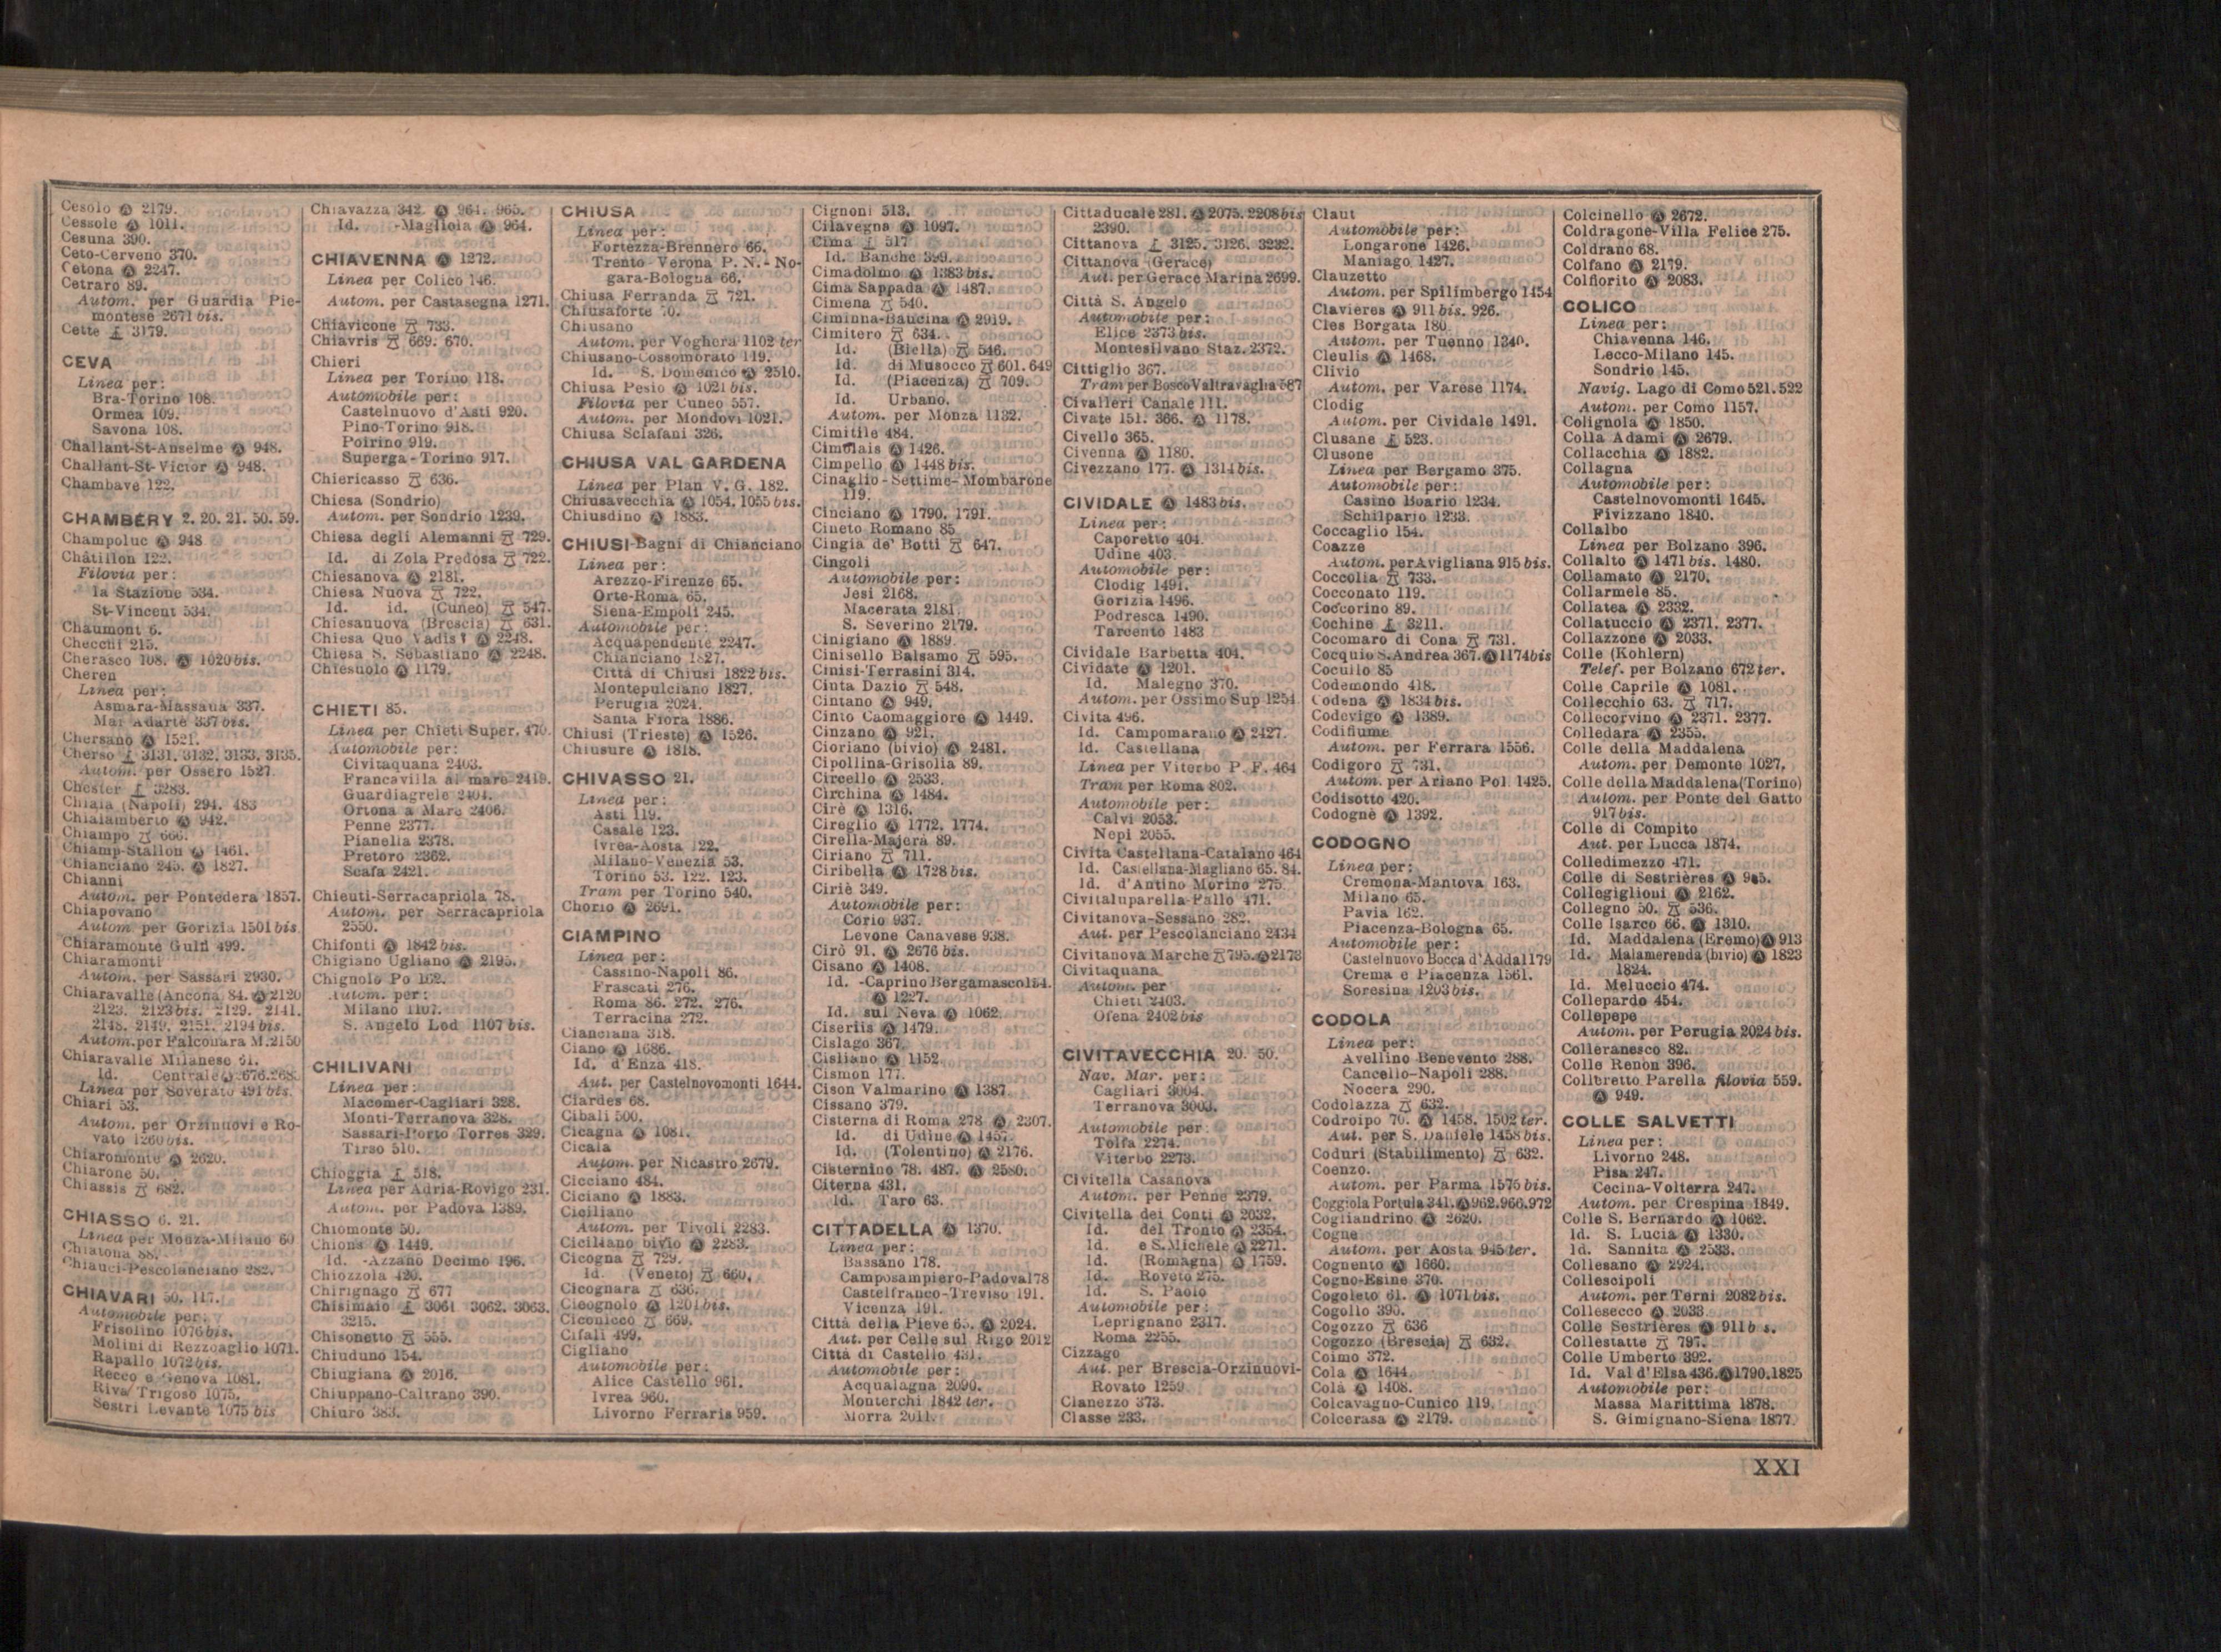 Cesolo Ⓐ 2179.
Cessole Ⓐ 1011.
Cesuna 390.
Ceto-Cerveno 370.
Cetona Ⓐ 2247.
Cetraro 89.
Autom. per Guardia Pie-
montese 2671 bis.
Cette ⚓ 3179.
CEVA
Linea per:
Bra-Torino 108.
Ormea 109.
Savona 108.
Challant-St-Anselme Ⓐ 948.
Challant-St-Victor Ⓐ 948.
Chambave 122.
CHAMBÉRY 2. 20. 21. 50. 59.
Champoluc Ⓐ 948
Châtillon 122.
Filovia per:
la Stazione 534.
St-Vincent 534.
Chaumont 6.
Checchi 215.
Cherasco 108. Ⓐ 1020 bis.
Cheren
Linea per:
Asmara-Massaua 337.
Mai Adarte 337 bis.
Chersano Ⓐ 1521.
Cherso ⚓ 3131. 3132. 3133. 3135.
Autom. per Ossero 1527.
Chester ⚓ 3283.
Chiaia (Napoli) 294. 483
Chialamberto Ⓐ 942.
Chiampo 666.
Chiamp-Stallon Ⓐ 1461.
Chianciano 245. Ⓐ 1827.
Chianni
Autom. per Pontedera 1857.
Chiapovano
Autom per Gorizia 1501 bis.
Chiaramonte Gulfi 499.
Chiaramonti
Autom. per Sassari 2930.
Chiaravalle (Ancona 84. Ⓐ 2120
2123. 2123 bis. 2129. 2141.
2148. 2149. 2151. 2194 bis.
Autom. per Falconara M. 2150
Chiaravalle Milanese 61.
Id. Centrale 676.
Linea per Soverato 491 bis.
Chiari 53.
Autom. per Orzinuovi e Ro-
vato 1260 bis.
Chiaromonte Ⓐ 2620.
Chiarone 50.
Chiassis 682.
CHIASSO 6. 21.
Linea per Monza-Milano 60
Chiatona 88.
Chiauci-Pescolanciano 282.
CHIAVARI 50. 117.
Automobile per:
Frisolino 1076 bis.
Molini di Rezzoaglio 1071.
Rapallo 1072 bis.
Recco e Genova 1081.
Riva Trigoso 1075.
Sestri Levante 1075 bis
Chiavazza 342. Ⓐ 964. 965.
Id. -Maglioia Ⓐ 964.
CHIAVENNA Ⓐ 1272.
Linea per Colico 146.
Autom. per Castasegna 1271.
Chiavicone 733.
Chiavris 669. 670.
Chieri
Linea per Torino 118.
Automobile per:
Castelnuovo d'Asti 920.
Pino-Torino 918.
Poirino 919.
Superga-Torino 917.
Chiericasso 636.
Chiesa (Sondrio)
Autom. per Sondrio 1239.
Chiesa degli Alemanni 729.
Id. di Zola Predosa 722.
Chiesanova Ⓐ 2181.
Chiesa Nuova 722.
Id. id. (Cuneo) 547.
Chiesanuova (Brescia) 631.
Chiesa Quo Vadis? Ⓐ 2248.
Chiesa S. Sebastiano Ⓐ 2248.
Chiesuolo Ⓐ 1179.
CHIETI 85.
Linea per Chieti Super. 470.
Automobile per:
Civitaquana 2403.
Francavilla al mare 2419.
Guardiagrele 2404.
Ortona a Mare 2406.
Penne 2377.
Pianella 2378.
Pretoro 2362.
Scafa 2421.
Chieuti-Serracapriola 78.
Autom. per Serracapriola
2550.
Chifonti Ⓐ 1842 bis.
Chigiano Ugliano Ⓐ 2195.
Chignolo Po 162.
Autom. per:
Milano 1107.
S. Angelo Lod 1107 bis.
CHILIVANI
Linea per:
Macomer-Cagliari 328.
Monti-Terranova 328.
Sassari-Porto Torres 329.
Tirso 510.
Chioggia ⚓ 518.
Linea per Adria-Rovigo 231.
Autom. per Padova 1389.
Chiomonte 50.
Chions Ⓐ 1449.
Id. -Azzano Decimo 196.
Chiozzola 420.
Chirignago 677
Chisimaio ⚓ 3061. 3062. 3063.
3215.
Chisonetto 555.
Chiuduno 154.
Chiugiana Ⓐ 2016.
Chiuppano-Caltrano 390.
Chiuro 383.
CHIUSA
Linea per:
Fortezza-Brennero 66.
Trento-Verona P. N.-No-
gara-Bologna 66.
Chiusa Ferranda 721.
Chiusaforte 70.
Chiusano
Autom. per Voghera 1102 ter
Chiusano-Cossomorato 119.
Id. S. Domenico Ⓐ 2510.
Chiusa Pesio Ⓐ 1021 bis.
Filovia per Cuneo 557.
Autom. per Mondovì 1021.
Chiusa Sclafani 326.
CHIUSA VAL GARDENA
Linea per Plan V. G. 182.
Chiusavecchia Ⓐ 1054. 1055 bis.
Chiusdino Ⓐ 1883.
CHIUSI-Bagni di Chianciano
Linea per:
Arezzo-Firenze 65.
Orte-Roma 65.
Siena-Empoli 245.
Automobile per:
Acquapendente 2247.
Chianciano 1827.
Città di Chiusi 1822 bis.
Montepulciano 1827.
Perugia 2024.
Santa Fiora 1886.
Chiusi (Trieste) Ⓐ 1526.
Chiusure Ⓐ 1818.
CHIVASSO 21.
Linea per:
Asti 119.
Casale 123.
Ivrea-Aosta 122.
Milano-Venezia 53.
Torino 53. 122. 123.
Tram per Torino 540.
Chorio Ⓐ 2691.
CIAMPINO
Linea per:
Cassino-Napoli 86.
Frascati 276.
Roma 86. 272. 276.
Terracina 272.
Cianciana 318.
Ciano Ⓐ 1686.
Id. d'Enza 418.
Aut. per Castelnovomonti 1644.
Ciardes 68.
Cibali 500.
Cicagna Ⓐ 1081.
Cicala
Autom. per Nicastro 2679.
Cicciano 484.
Ciciano Ⓐ 1883.
Ciciliano
Autom. per Tivoli 2283.
Ciciliano bivio Ⓐ 2283.
Cicogna 729.
Id. (Veneto) 660.
Cicognara 636.
Cicognolo Ⓐ 1201 bis.
Ciconicco 669.
Cifali 499.
Cigliano
Automobile per:
Alice Castello 961.
Ivrea 960.
Livorno Ferraris 959.
Cignoni 513.
Cilavegna Ⓐ 1097.
Cima ⚓ 517
Id. Banche 399.
Cimadolmo Ⓐ 1383 bis.
Cima Sappada Ⓐ 1487.
Cimena 540.
Ciminna-Baucina Ⓐ 2919.
Cimitero 634.
Id. (Biella) 546.
Id. di Musocco 601. 649
Id. (Piacenza) 709.
Id. Urbano.
Autom. per Monza 1132.
Cimitile 484.
Cimolais Ⓐ 1426.
Cimpello Ⓐ 1448 bis.
Cinaglio-Settime-Mombarone
119.
Cinciano Ⓐ 1790. 1791.
Cineto Romano 85
Cingia de' Botti 647.
Cingoli
Automobile per:
Jesi 2168.
Macerata 2181.
S. Severino 2179.
Cinigiano Ⓐ 1889.
Cinisello Balsamo 595.
Cinisi-Terrasini 314.
Cinta Dazio 548.
Cintano Ⓐ 949.
Cinto Caomaggiore Ⓐ 1449.
Cinzano Ⓐ 921.
Cioriano (bivio) Ⓐ 2481.
Cipollina-Grisolia 89.
Circello Ⓐ 2533.
Circhina Ⓐ 1484.
Cirè Ⓐ 1316.
Cireglio Ⓐ 1772. 1774.
Cirella-Majerà 89.
Ciriano 711.
Ciribella Ⓐ 1728 bis.
Ciriè 349.
Automobile per:
Corio 937.
Levone Canavese 938.
Cirò 91. Ⓐ 2676 bis.
Cisano Ⓐ 1408.
Id. -Caprino Bergamasco 154.
Ⓐ 1227.
Id. sul Neva Ⓐ 1062.
Ciseriis Ⓐ 1479.
Cislago 367.
Cisliano Ⓐ 1152
Cismon 177.
Cison Valmarino Ⓐ 1387.
Cissano 379.
Cisterna di Roma 278 Ⓐ 2307.
Id. di Udine Ⓐ 1457.
Id. (Tolentino) Ⓐ 2176.
Cisternino 78. 487. Ⓐ 2580.
Citerna 431.
Id. Taro 63.
CITTADELLA Ⓐ 1370.
Linea per:
Bassano 178.
Camposampiero-Padova 178
Castelfranco-Treviso 191.
Vicenza 191.
Città della Pieve 65. Ⓐ 2024.
Aut. per Celle sul Rigo 2012
Città di Castello 431.
Automobile per:
Acqualagna 2090.
Monterchi 1842 ter.
Morra 2011.
Cittaducale 281. Ⓐ 2075. 2208 bis
2390.
Cittanova ⚓ 3125. 3126. 3232.
Cittanova (Gerace)
Aut. per Gerace Marina 2699.
Città S. Angelo
Automobile per:
Elice 2373 bis.
Montesilvano Staz. 2372.
Cittiglio 367.
Tram per Bosco Valtravaglia 587
Civalleri Canale 111.
Civate 151. 366. Ⓐ 1178.
Civello 365.
Civenna Ⓐ 1180.
Civezzano 177. Ⓐ 1314 bis.
CIVIDALE Ⓐ 1483 bis.
Linea per:
Caporetto 404.
Udine 403.
Automobile per:
Clodig 1491.
Gorizia 1496.
Podresca 1490.
Tarcento 1483
Cividale Barbetta 404.
Cividate Ⓐ 1201.
Id. Malegno 370.
Autom. per Ossimo Sup 1254
Civita 496.
Id. Campomarano Ⓐ 2427.
Id. Castellana
Linea per Viterbo P. F. 464
Tram per Roma 802.
Automobile per:
Calvi 2053.
Nepi 2055.
Civita Castellana-Catalano 464
Id. Castellana-Magliano 65. 84.
Id. d'Antino Morino 275
Civitaluparella-Fallo 471.
Civitanova-Sessano 282.
Aut. per Pescolanciano 2434
Civitanova Marche 795. Ⓐ 2173
Civitaquana
Autom. per
Chieti 2403.
Ofena 2402 bis
CIVITAVECCHIA 20. 50.
Nav. Mar. per:
Cagliari 3004.
Terranova 3003.
Automobile per:
Tolfa 2274.
Viterbo 2273.
Civitella Casanova
Autom. per Penne 2379.
Civitella dei Conti Ⓐ 2032.
Id. del Tronto Ⓐ 2354.
Id. e S. Michele Ⓐ 2271.
Id. (Romagna) Ⓐ 1759.
Id. Roveto 275.
Id. S. Paolo
Automobile per:
Leprignano 2317.
Roma 2255.
Cizzago
Aut. per Brescia-Orzinuovi-
Rovato 1259
Clanezzo 373.
Classe 233.
Claut
Automobile per:
Longarone 1426.
Maniago 1427.
Clauzetto
Autom. per Spilimbergo 1454
Clavieres Ⓐ 911 bis. 926.
Cles Borgata 180
Autom. per Tuenno 1340.
Cleulis Ⓐ 1468.
Clivio
Autom. per Varese 1174.
Clodig
Autom. per Cividale 1491.
Clusane ⚓ 523.
Clusone
Linea per Bergamo 375.
Automobile per:
Casino Boario 1234.
Schilpario 1233.
Coccaglio 154.
Coazze
Autom. per Avigliana 915 bis.
Coccolia 733.
Cocconato 119.
Coccorino 89.
Cochine ⚓ 3211.
Cocomaro di Cona 731.
Cocquio S. Andrea 367. Ⓐ 1174 bis
Cocullo 85
Codemondo 418.
Codena Ⓐ 1834 bis.
Codevigo Ⓐ 1389.
Codifiume
Autom. per Ferrara 1556.
Codigoro 731.
Autom. per Ariano Pol. 1425.
Codisotto 420.
Codognè Ⓐ 1392.
CODOGNO
Linea per:
Cremona-Mantova 163.
Milano 65.
Pavia 162.
Piacenza-Bologna 65.
Automobile per:
Castelnuovo Bocca d'Adda 1179
Crema e Piacenza 1561.
Soresina 1203 bis.
CODOLA
Linea per:
Avellino Benevento 288.
Cancello-Napoli 288.
Nocera 290.
Codolazza 632.
Codroipo 70. Ⓐ 1458. 1502 ter.
Aut. per S. Daniele 1458 bis.
Coduri (Stabilimento) 632.
Coenzo.
Autom. per Parma 1576 bis.
Coggiola Portula 341. Ⓐ 962. 966. 972
Cogliandrino Ⓐ 2620.
Cogne
Autom. per Aosta 945 ter.
Cognento Ⓐ 1660.
Cogno-Esine 370.
Cogoleto 61. Ⓐ 1071 bis.
Cogollo 390.
Cogozzo 636
Cogozzo (Brescia) 632.
Coimo 372.
Cola Ⓐ 1644.
Colà Ⓐ 1408.
Colcavagno-Cunico 119.
Colcerasa Ⓐ 2179.
Colcinello Ⓐ 2672.
Coldragone-Villa Felice 275.
Coldrano 68.
Colfano Ⓐ 2179.
Colfiorito Ⓐ 2083.
COLICO
Linea per:
Chiavenna 146.
Lecco-Milano 145.
Sondrio 145.
Navig. Lago di Como 521. 522
Autom. per Como 1157.
Colignola Ⓐ 1850.
Colla Adami Ⓐ 2679.
Collacchia Ⓐ 1882.
Collagna
Automobile per:
Castelnovomonti 1645.
Fivizzano 1840.
Collalbo
Linea per Bolzano 396.
Collalto Ⓐ 1471 bis. 1480.
Collamato Ⓐ 2170.
Collarmele 85.
Collatea Ⓐ 2332.
Collatuccio Ⓐ 2371. 2377.
Collazzone Ⓐ 2033.
Colle (Kohlern)
Telef. per Bolzano 672 ter.
Colle Caprile Ⓐ 1081.
Collecchio 63. 717.
Collecorvino Ⓐ 2371. 2377.
Colledara Ⓐ 2355.
Colle della Maddalena
Autom. per Demonte 1027.
Colle della Maddalena (Torino)
Autom. per Ponte del Gatto
917 bis.
Colle di Compito
Aut. per Lucca 1874.
Colledimezzo 471.
Colle di Sestrières Ⓐ
Collegiglioni Ⓐ 2162.
Collegno 50. 536.
Colle Isarco 66. Ⓐ 1310.
Id. Maddalena (Eremo) Ⓐ 913
Id. Malamerenda (bivio) Ⓐ 1823
1824.
Id. Meluccio 474.
Collepardo 454.
Collepepe
Autom. per Perugia 2024 bis.
Colleranesco 82.
Colle Renon 396.
Colleretto Parella filovia 559.
Ⓐ 949.
COLLE SALVETTI
Linea per:
Livorno 248.
Pisa 247.
Cecina-Volterra 247.
Autom. per Crespina 1849.
Colle S. Bernardo Ⓐ 1062.
Id. S. Lucia Ⓐ 1330.
Id. Sannita Ⓐ 2533.
Collesano Ⓐ 2924.
Collescipoli
Autom. per Terni 2082 bis.
Collesecco Ⓐ 2033
Colle Sestrières Ⓐ 911 b s.
Collestatte 797.
Colle Umberto 392.
Id. Val d'Elsa 436. Ⓐ 1790. 1825
Automobile per:
Massa Marittima 1878.
S. Gimignano-Siena 1877.
XXI